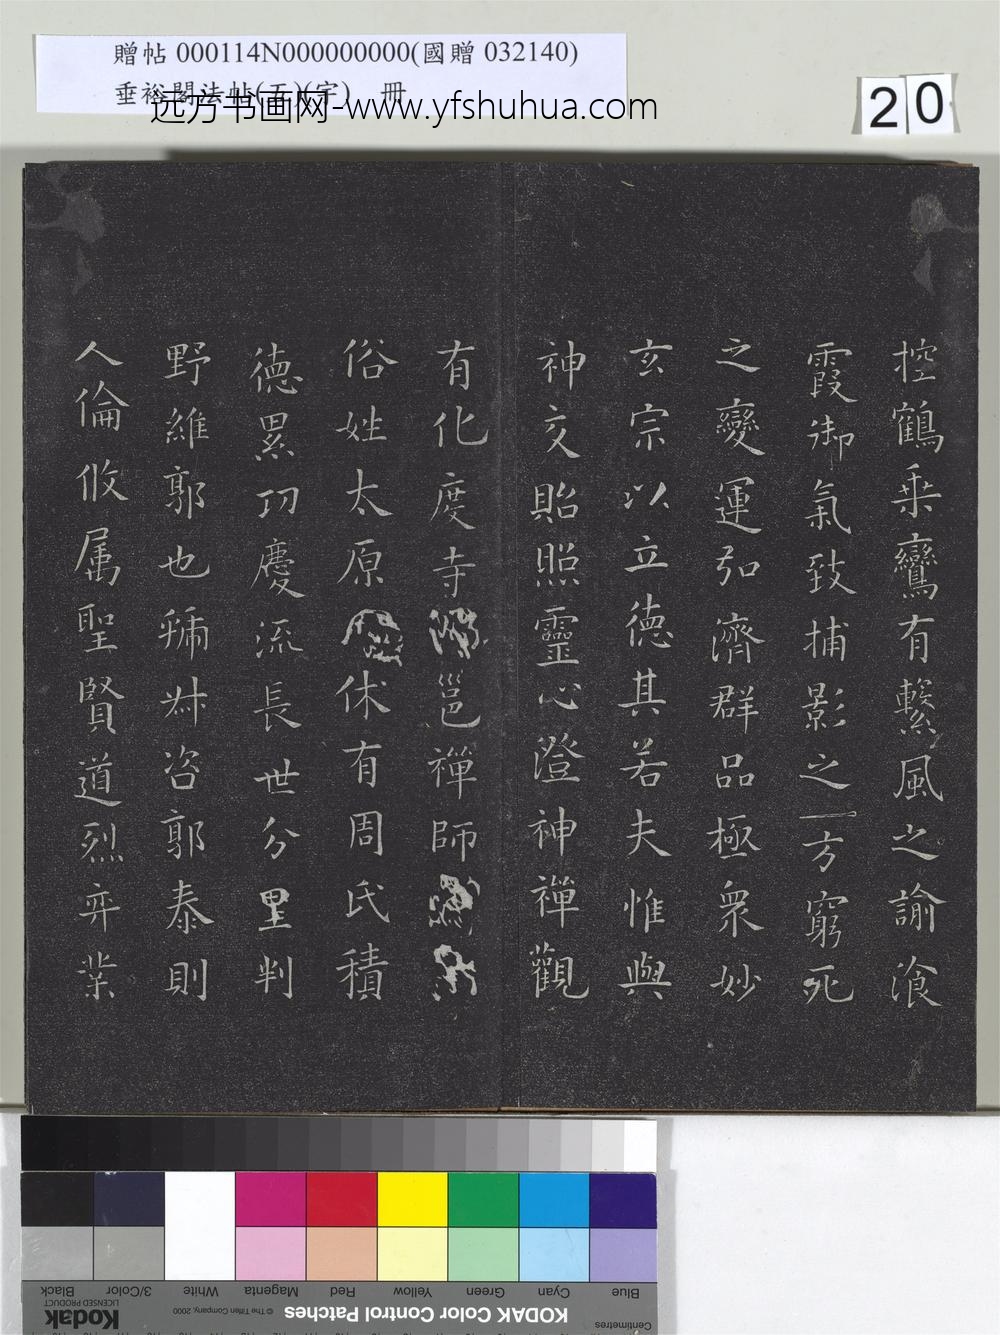 贈帖 000114N000000000(國贈 032140)
垂裕閣法帖(五)(宇) 冊
远方书画网-www.yfshuhua.com
20
控鶴乘鸞有繫風之諭飡
霞御氣致捕影之一方窮死
之變運弘濟群品極眾妙
玄宗以立德其若夫惟與
神交貽照靈心澄神禪觀
有化度寺邕禪師
俗姓太原休有周氏積
德累功慶流長世分里判
野維郭也號叔咨郭泰則
人倫攸属聖賢道烈弈業
Blue Cyan Green Yellow Red Magenta White 3/Color Black
Centimetres
KODAK Color Control Patches
© The Tiffen Company, 2000
Kodak
LICENSED PRODUCT